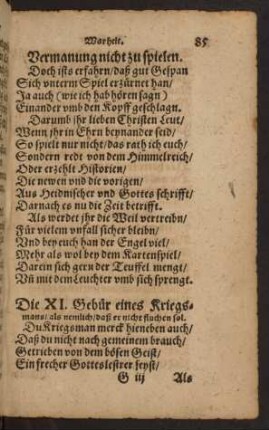 Warheit. 85
Vermanung nicht zu spielen.
Doch ists erfahrn/daß gut Gespan
Sich vnterm Spiel erzürnet han/
Ja auch (wie ich hab hören sagn)
Einander vmb den Kopff geschlagn.
Darumb jhr lieben Christen Leut/
Wenn jhr in Ehrn beynander seid/
So spielt nur nicht/das rath ich euch/
Sondern redt von dem Himmelreich/
Oder erzehlt Historien/
Die newen vnd die vorigen/
Aus Heidnischer vnd Gottes schrifft/
Darnach es nu die Zeit betrifft.
Als werdet jhr die Weil vertreibn/
Für vielem vnfall sicher bleibn/
Vnd bey euch han der Engel viel/
Mehr als wol bey dem Kartenspiel/
Darein sich gern der Teuffel mengt/
Vñ mit dem Leuchter vmb sich sprengt.
Die XI. Gebür eines Kriegs-
mans/als nemlich/daß er nicht fluchen sol.
Du Kriegsman merck hieneben auch/
Daß du nicht nach gemeinem brauch/
Getrieben von dem bösen Geist/
Ein frecher Gotteslestrer seyst/
G iij Als